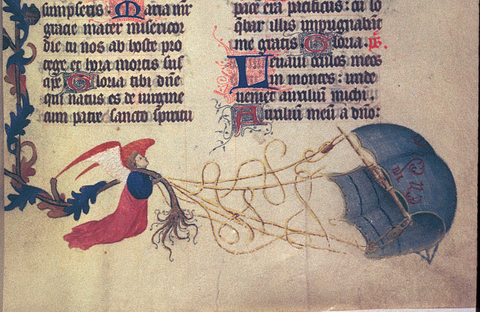 sumpseris. Maria mr
gracie mater misericor
die tu nos ab hoste pro
tege et hora mortis sus
cipe Gloria tibi dñe
qui natus es de uirgine
cum patre sancto spiritu
pace era pacificus: cū lo
q̄bar illis impugnabāt
me gratis Gloria. ps.
Leuaui oculos meos
in montes: unde
ueniet auxilium michi.
Auxiliū meū a dño: